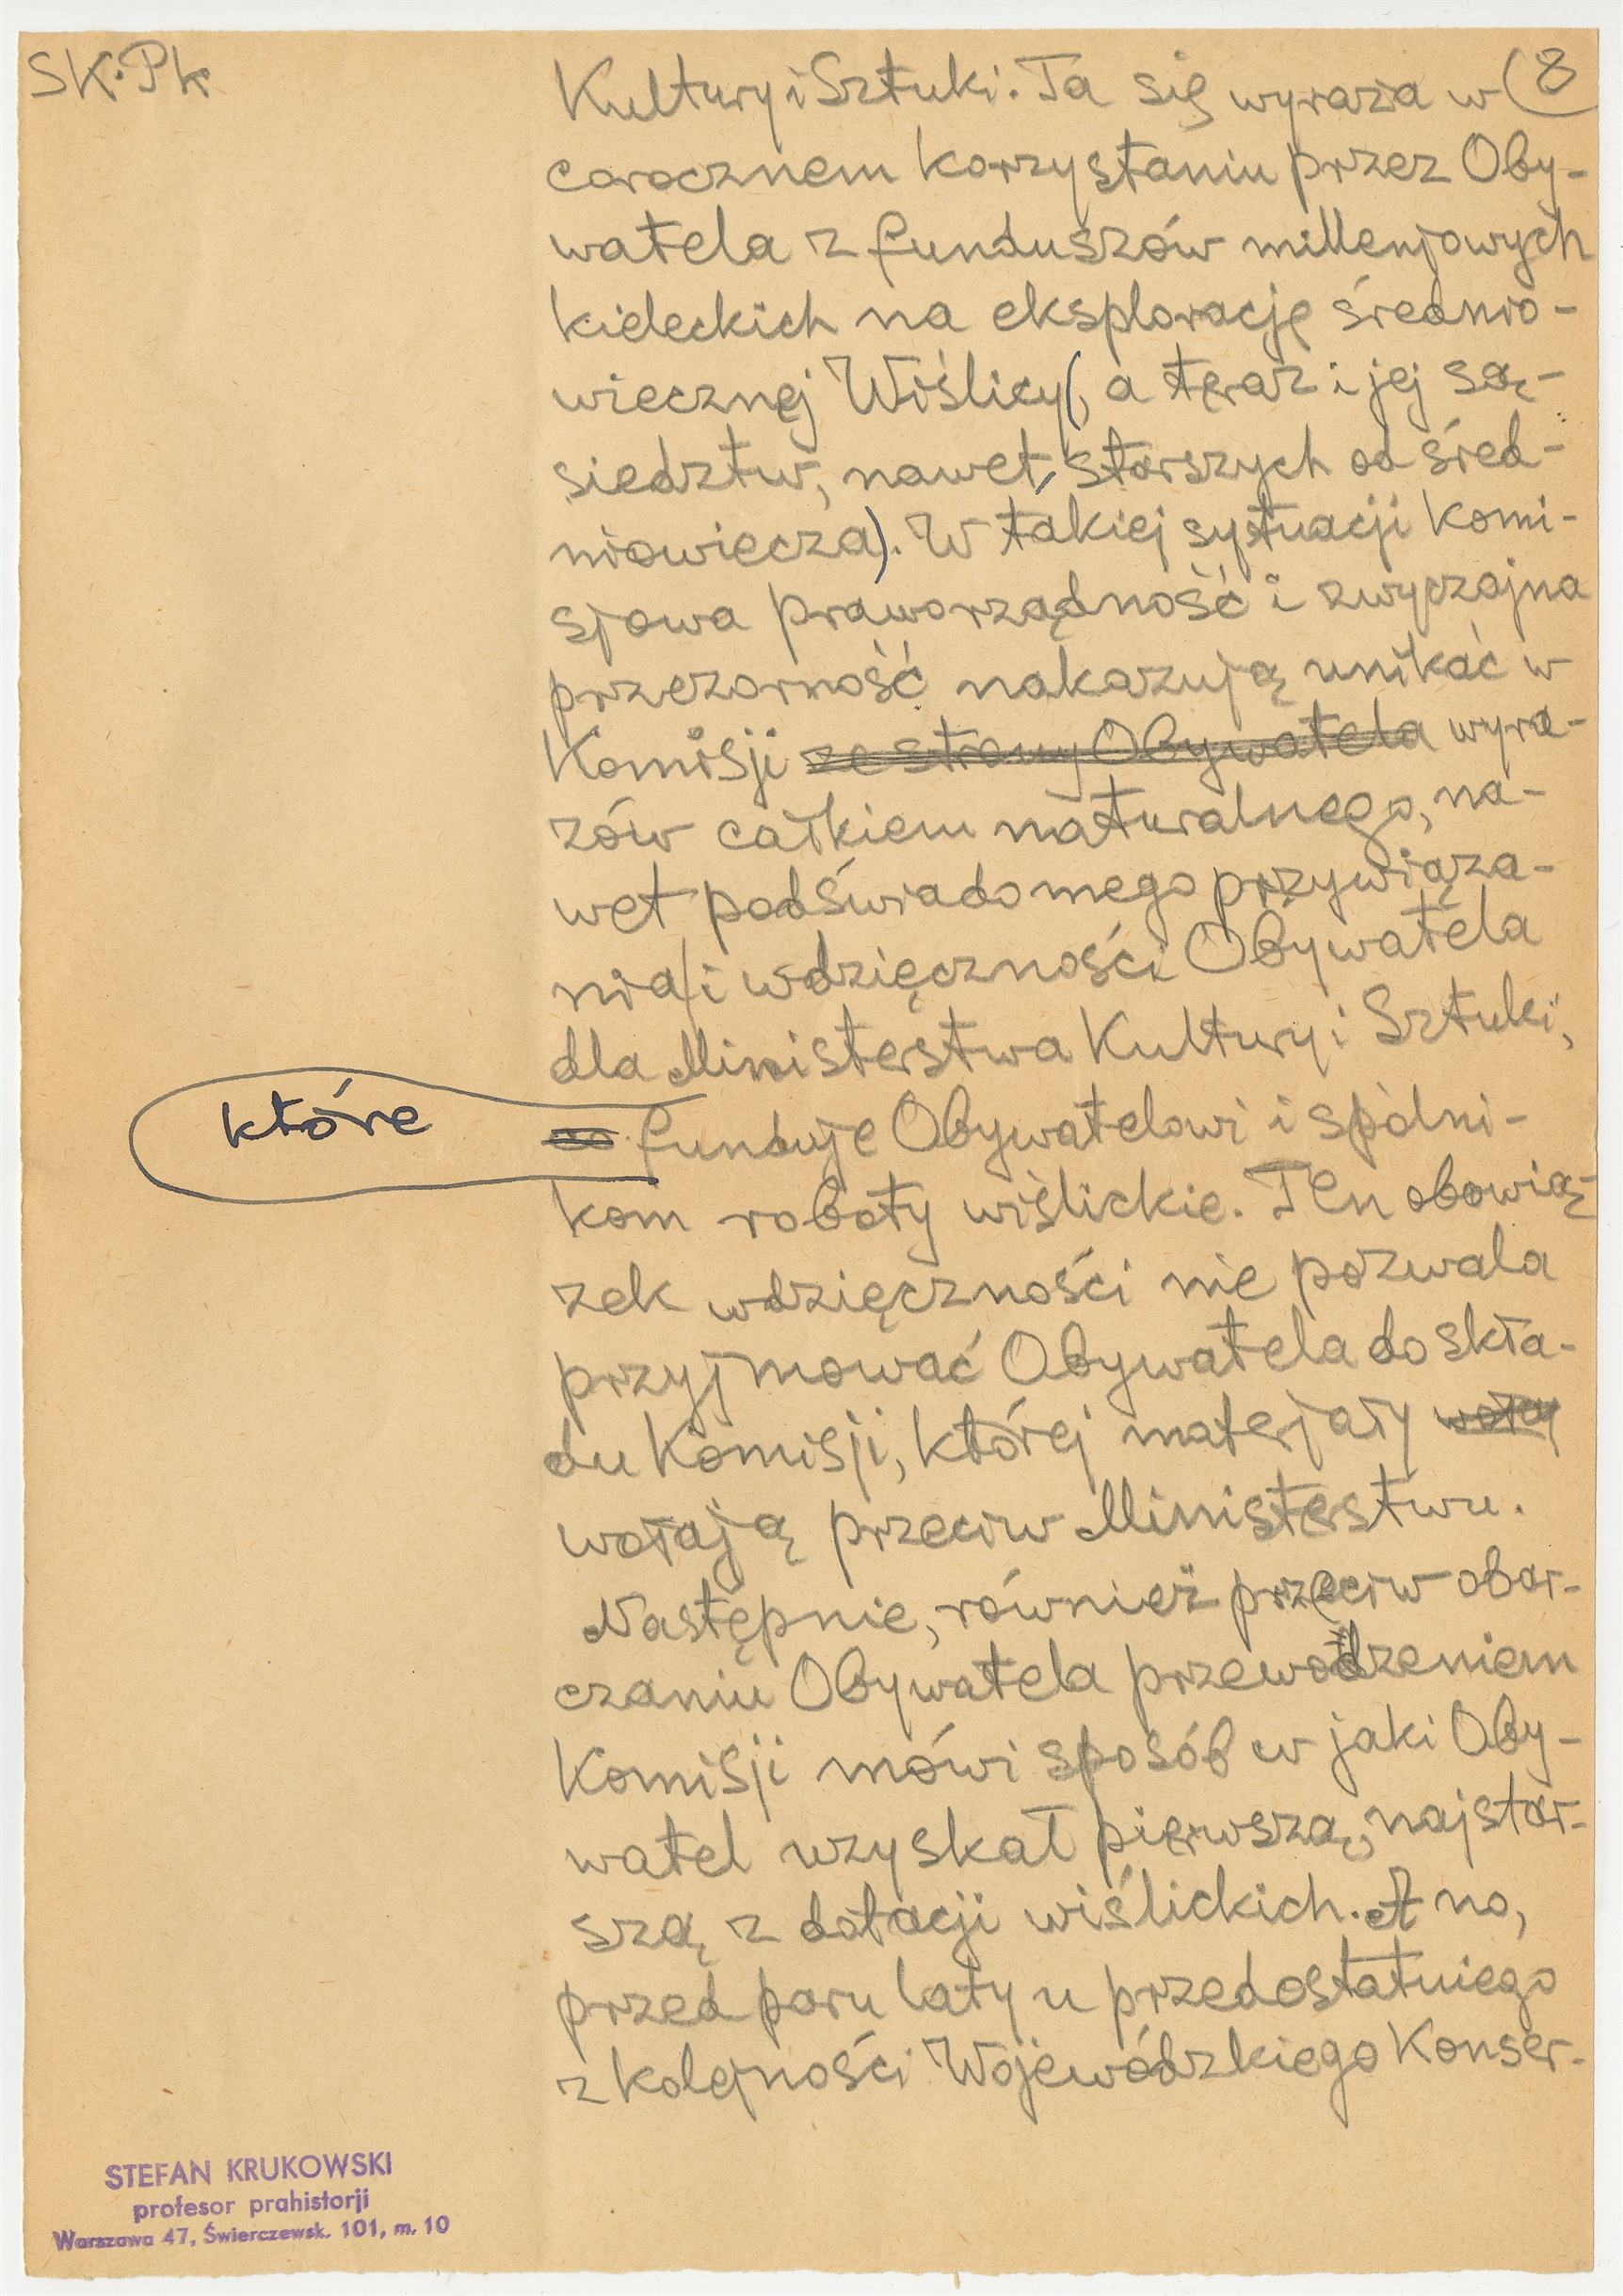 SK.Pk
(8
Kultury i Sztuki. Ta się wyraża w
corocznem korzystaniu przez Oby-
watela z funduszów millenjowych
kieleckich na eksplorację średnio-
wiecznej Wiślicy(, a teraz i jej są-
siedztw, nawet, starszych od śred-
niowiecza). W takiej sytuacji komi-
sjowa praworządność i zwyczajna
przezorność nakazują unikać w
Komisji ze strony Obywatela wyra-
zów całkiem naturalnego, na-
wet podświadomego przywiąza-
nia/i wdzięczności Obywatela
dla Ministerstwa Kultury i Sztuki,
które
co funduje Obywatelowi i spólni-
kom roboty wiślickie. Ten obowią-
zek wdzięczności nie pozwala
przyjmować Obywatela do skła-
du Komisji, której materjały wołay
wołają przeciw Ministerstwu.
Następnie, również przeciw obar-
czaniu Obywatela przewodzeniem
Komisji mówi sposób w jaki Oby-
watel uzyskał pierwszą, najstar-
szą z dotacji wiślickich. A no,
przed paru laty u przedostatniego
z kolejności Wojewódzkiego Konser-
STEFAN KRUKOWSKI
profesor prahistorji
Warszawa 47, Świerczewsk. 101, m. 10